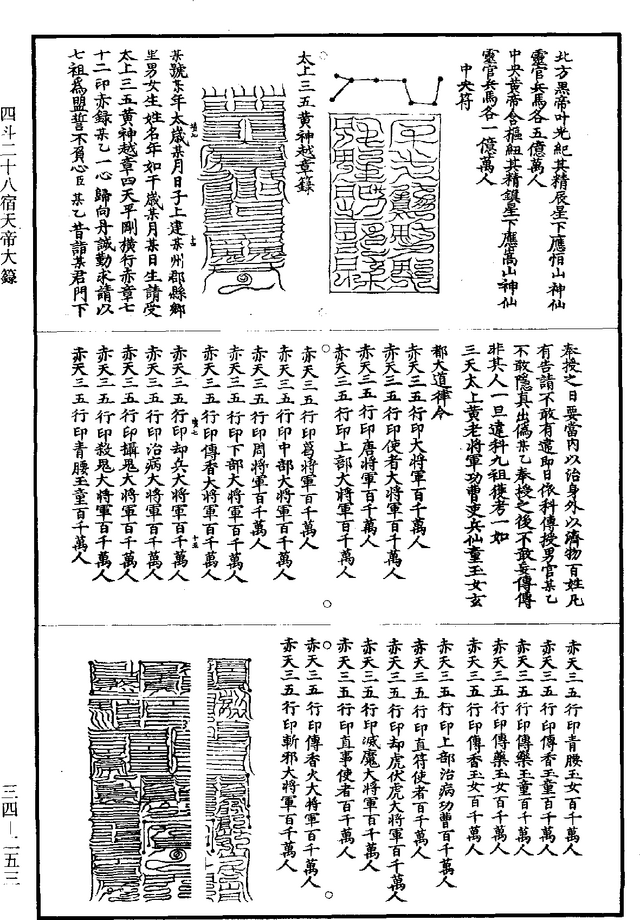 北方黑帝叶光紀其精辰星下應恒山神仙
靈官兵馬各五億萬人
中央黃帝含樞紐其精鎮星下應嵩山神仙
靈官兵馬各一億萬人
中央符
太上三五黃神越章籙
某號某年太歲某月日子上建某州郡縣鄉
里男女生姓名年如干歲某月某日生請受
太上三五黃神越章四天平剛橫行赤章七
十二印赤錄某乙一心歸向丹誠勤求請以
七祖為盟誓不負心臣某乙昔詣某君門下
奉授之日要當內以治身外以濟物百姓凡
有告請不敢有違即日依科傳授男官某乙
不敢隱真出偽某乙奉授之後不敢妄傳傳
非其人一旦違科九祖獲考一如
三天太上黃老將軍功曹吏兵仙童玉女玄
都大道律令
赤天三五行印大將軍百千萬人
赤天三五行印使者大將軍百千萬人
赤天三五行印唐將軍百千萬人
赤天三五行印上部大將軍百千萬人
赤天三五行印葛將軍百千萬人
赤天三五行印中部大將軍百千萬人
赤天三五行印周將軍百千萬人
赤天三五行印下部大將軍百千萬人
赤天三五行印傳香大將軍百千萬人
赤天三五行印却兵大將軍百千萬人
赤天三五行印治病大將軍百千萬人
赤天三五行印攝鬼大將軍百千萬人
赤天三五行印殺鬼大將軍百千萬人
赤天三五行印青腰玉童百千萬人
赤天三五行印青腰玉女百千萬人
赤天三五行印傳香玉童百千萬人
赤天三五行印傳藥玉童百千萬人
赤天三五行印傳藥玉女百千萬人
赤天三五行印傳香玉女百千萬人
赤天三五行印上部治病功曹百千萬人
赤天三五行印直符使者百千萬人
赤天三五行印却虎伏虎大將軍百千萬人
赤天三五行印滅魔大將軍百千萬人
赤天三五行印直事使者百千萬人
赤天三五行印傳香火大將軍百千萬人
赤天三五行印斬邪大將軍百千萬人
四斗二十八宿天帝大籙
三四—二五三